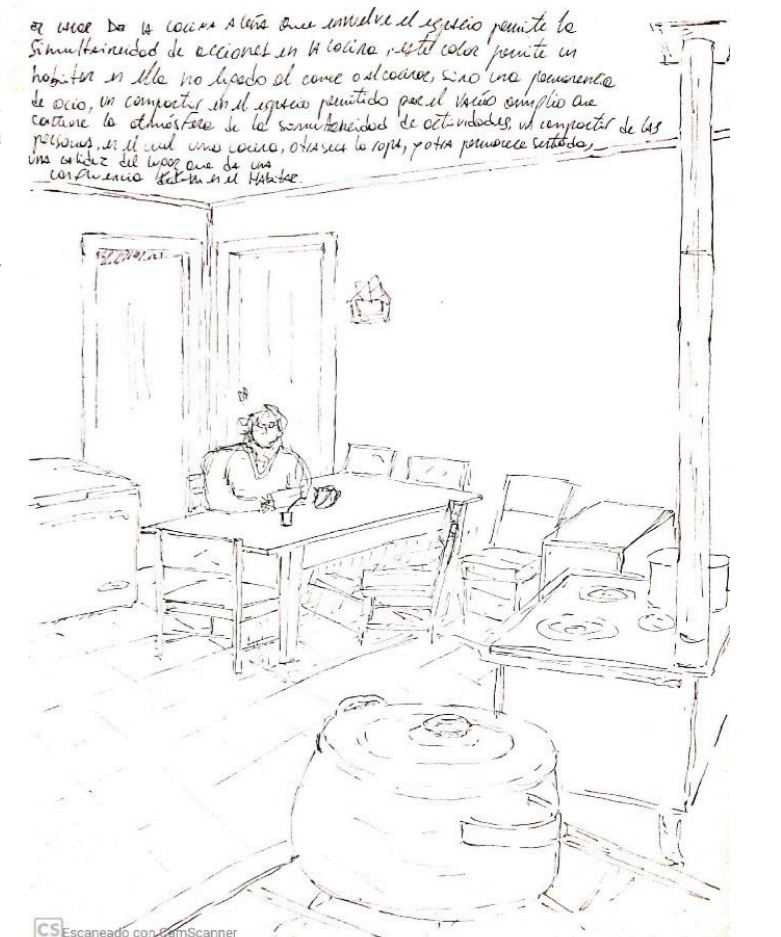 El calor De la cocina A leña que envuelve el espacio permite la
simultaineidad de acciones en la cocina, este calor permite un
habitar en ella no ligado al comer o al cocinar, sino una permanencia
de ocio, un compartir en el espacio permitido por el vacío amplio que
contiene la atmósfera de la simultaneidad de actividades, un compartir de las
personas, en el cual una cocina, otra seca la ropa, y otra permanece sentada,
una calidez del lugar que da una
confluencia en el Habitar.
CS Escaneado con CamScanner